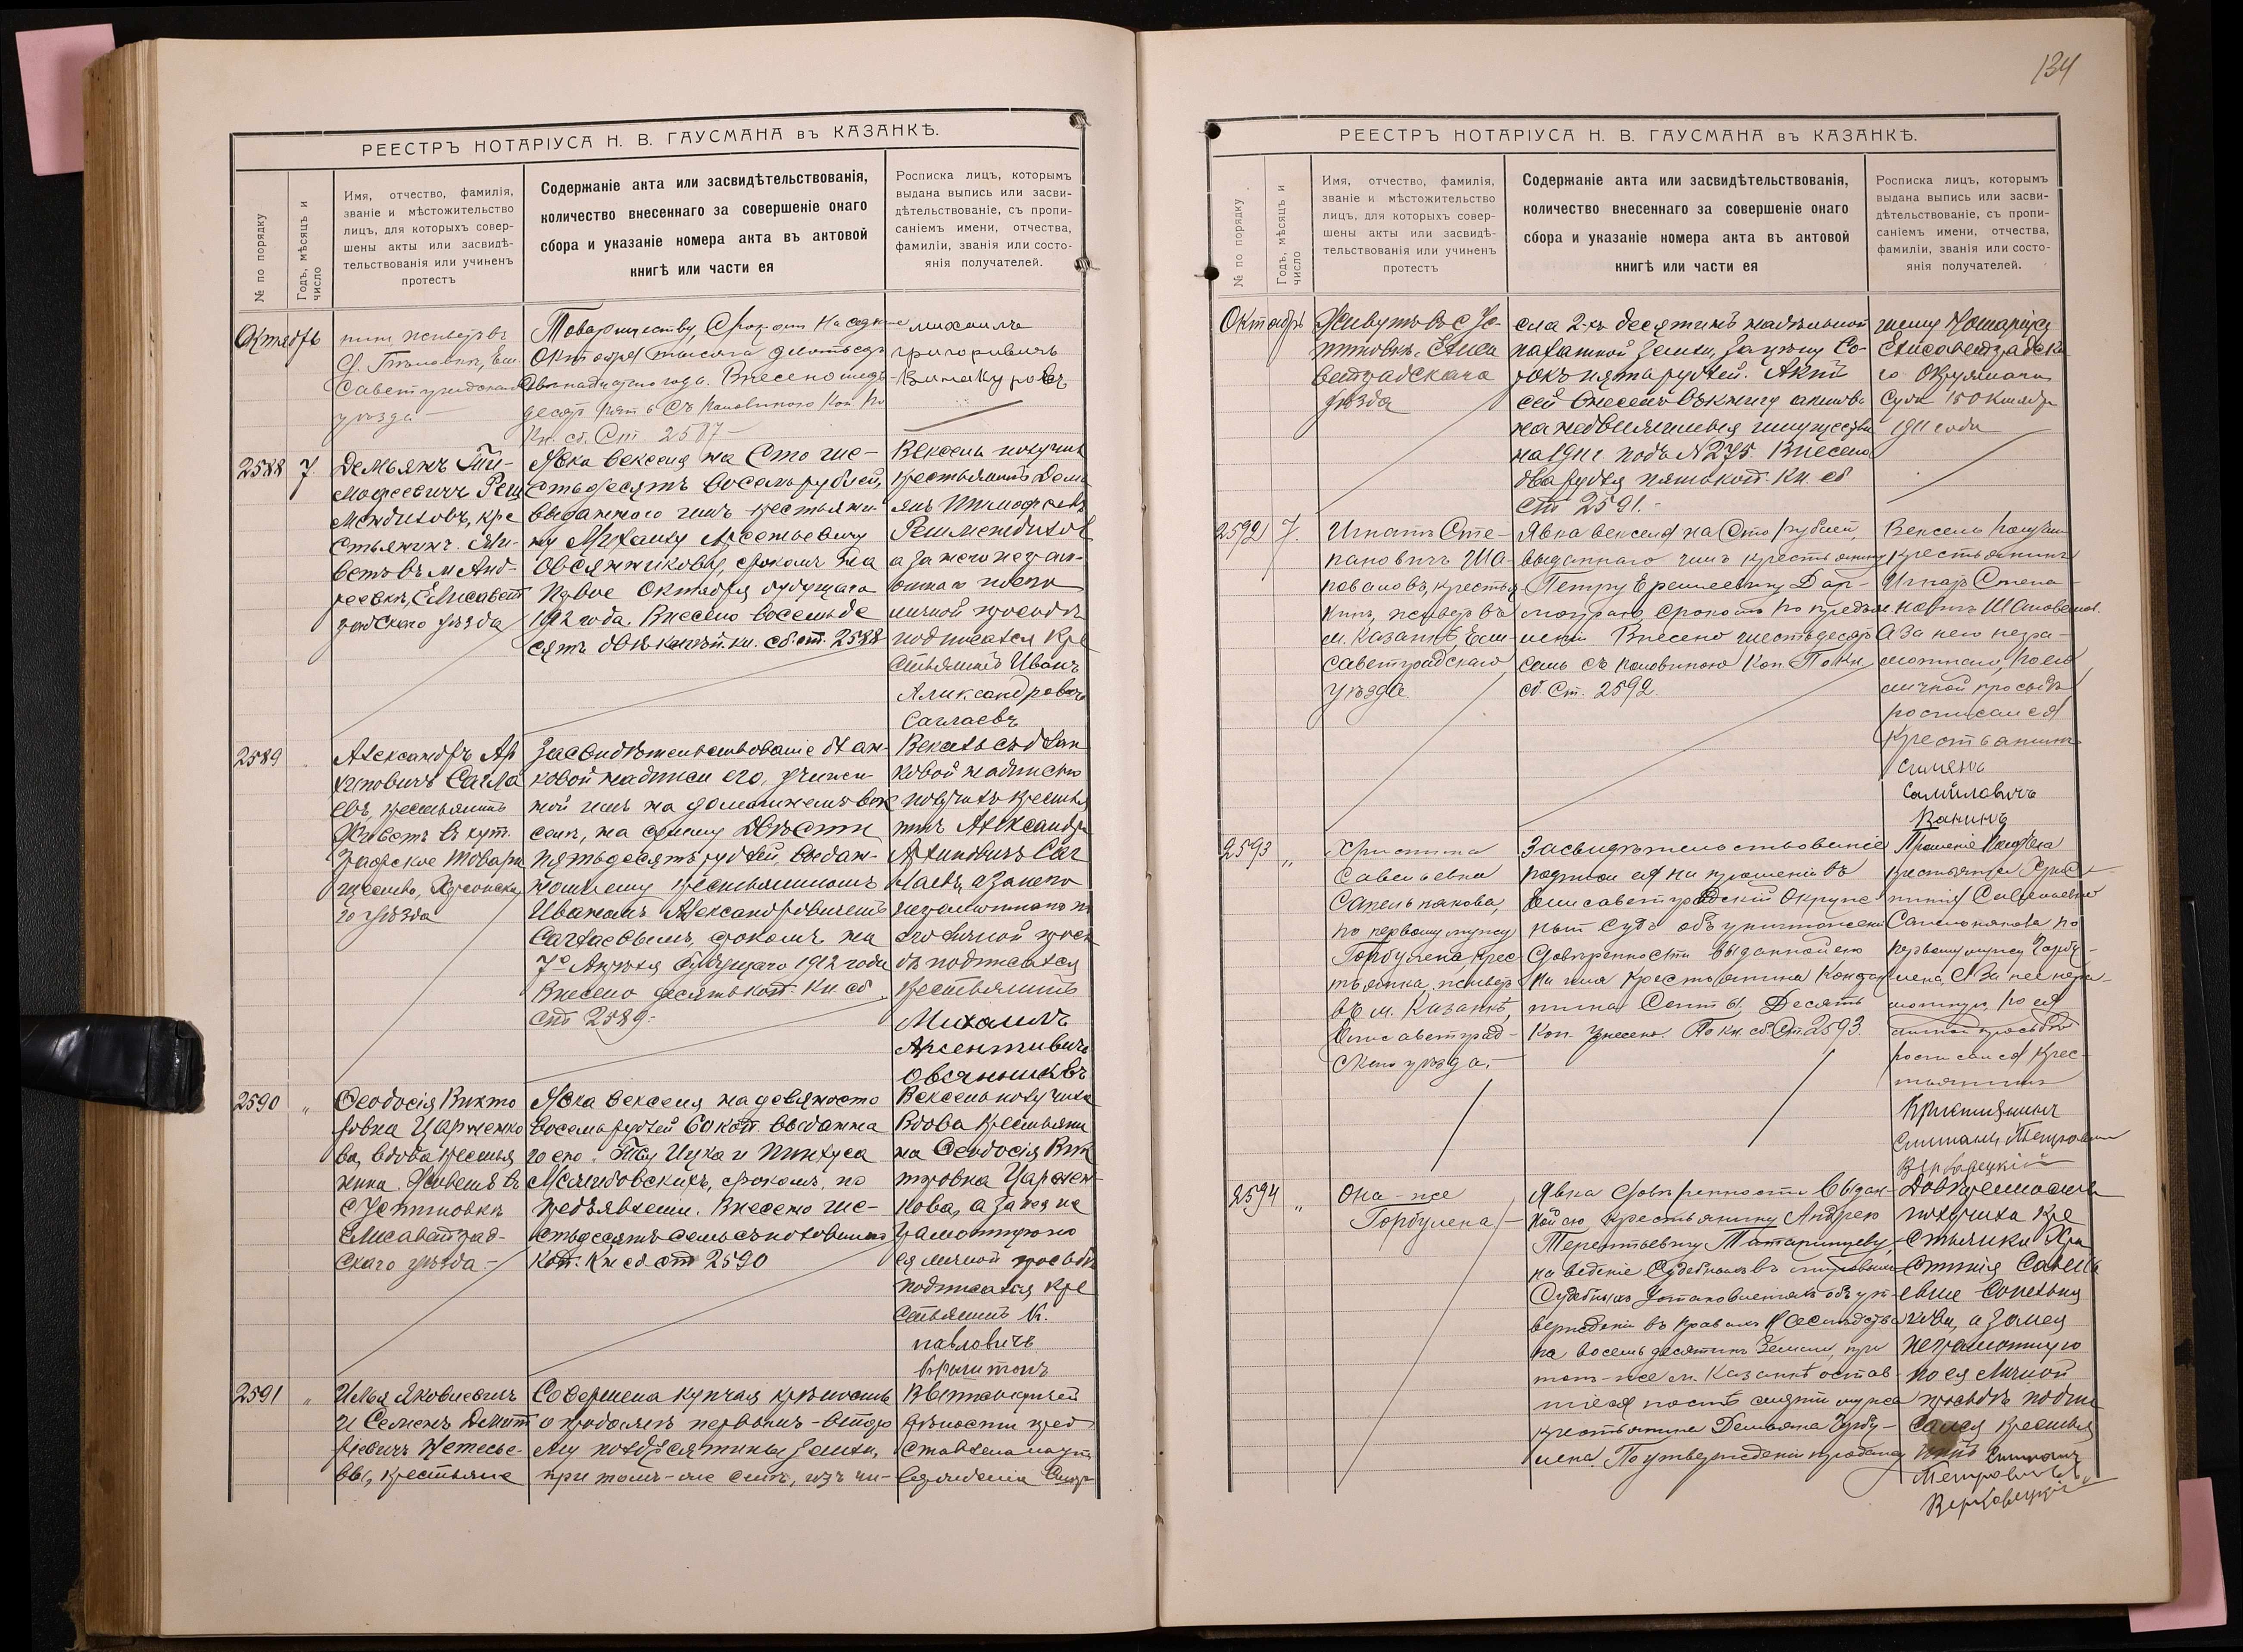 РЕЕСТРЪ НОТАРІУСА Н. В. ГАУСМАНА въ КАЗАНКѢ.
№ по порядку
Годъ, мѣсяцъ и
число
Имя, отчество, фамилія,
званіе и мѣстожительство
лицъ, для которыхъ совер-
шены акты или засвидѣ-
тельствованія или учиненъ
протестъ
Содержаніе акта или засвидѣтельствованія,
количество внесеннаго за совершеніе онаго
сбора и указаніе номера акта въ актовой
книгѣ или части ея
Росписка лицъ, которымъ
выдана выпись или засви-
дѣтельствованіе, съ пропи-
саніемъ имени, отчества,
фамиліи, званія или состо-
янія получателей.
Октябрь
уѣзда
Товариществу,
года. Внесено
Кн. сб. Ст. 2587
Михаилъ
григориевичъ
2588 7.
Демьянъ Ти-
мофеевичъ
крe
стьянинъ. Жи-
ветъ въ м Анд-
реевкѣ, Елисавет
градскаго уѣзда
Явка векселя на Сто ше-
стьдесятъ восемь рублей,
выданнаго имъ крестьяни-
ну Михаилу Арсентьевичу
Овсянникову, срокомъ на
первое Октября будущаго
1912 года. Внесено восемьде
сятъ двѣ копѣй. кн. сб. ст. 2588
Вексель получилъ
крестьянинъ Демь
янъ Тимофеевъ
а за него неграм-
отнаго по его
личной просьбѣ
подписался Кре
стьянинъ Иванъ
Александровичъ
Саглаевъ
2589
Александръ Ар
хиповичъ Сагла
евъ, крестьянинъ
Живетъ въ хут.
Товари
щество, Херсонска
го уѣзда
Засвидѣтельствованіе блан-
ковой надписи его, учинен-
ной имъ на домашнемъ век
селѣ, на сумму Двѣсти
пятьдесятъ рублей, выдан-
номъ ему крестьяниномъ
Иваномъ Александровичемъ
Саглаевымъ, срокомъ на
7е Апрѣля будущаго 1912 года
Внесено десять коп. Кн. сб
Ст 2589.
Вексель съ блан
ковой надписью
получилъ крестья
нинъ Александръ
Архиповичъ Саг
лаевъ, а за него
неграмотнаго по
его личной прось
бѣ подписался
крестьянинъ
Михаилъ
Арсентиевичъ
Овсянниковъ
2590 "
Феодосія Викто
ровна Царженко
ва, вдова крестья
нина. Живетъ въ
с Устиновкѣ
Елисаветград-
скаго уѣзда
Явка векселя на девяносто
восемь рублей 60 коп. выданна
го ею Ицка и Пинхуса
срокомъ, по
предъявленіи. Внесено ше-
стьдесятъ семь съ половиною
коп. Кн сб ст 2590
Вексель получила
Вдова крестьяни
на Феодосія Вик
торовна Царжен-
кова, а за нея не
грамотную по
ея личной просьбѣ
подписался кре
стьянинъ К.
павловичъ
2591 "
Илья Яковлевичъ
и Семенъ Дмит
ріевичъ
вы, крестьяне
Совершена купчая крѣпость
о продажѣ первымъ - второ
му полдѣсятины земли,
при томъ-же селѣ, изъ чи-
Выпись купчей
крѣпости пред
ставлена на ут
вержденіе Стар
134
РЕЕСТРЪ НОТАРІУСА Н. В. ГАУСМАНА въ КАЗАНКѢ.
№ по порядку
Годъ, мѣсяцъ и
число
Имя, отчество, фамилія,
званіе и мѣстожительство
лицъ, для которыхъ совер-
шены акты или засвидѣ-
тельствованія или учиненъ
протестъ
Содержаніе акта или засвидѣтельствованія,
количество внесеннаго за совершеніе онаго
сбора и указаніе номера акта въ актовой
книгѣ или части ея
Росписка лицъ, которымъ
выдана выпись или засви-
дѣтельствованіе, съ пропи-
саніемъ имени, отчества,
фамиліи, званія или состо-
янія получателей.
Октябрь
Живутъ въ с Ус-
тиновкѣ, Елиса
ветградскаго
уѣзда
сла 2-хъ десятинъ надѣльной
пахатной земли, за цѣну Со-
рокъ пять рублей. Актъ
сей внесенъ въ книгу актовъ
на недвижимыя имущества
на 1911 г подъ № 275. Внесено
два рубля пять коп. Кн. сб
ст 2591.-
шему Нотаріусу
Елисаветградска
го Окружнаго
Суда 15 Октября
1911 года
2592 7.
Игнатъ Сте-
пановичъ Ша-
поваловъ, крестья
нинъ, живетъ въ
м. Казанкѣ, Ели-
саветградскаго
уѣзда
Явка векселя на Сто рублей,
выданнаго имъ крестьянину
Петру Еремеевичу
срокомъ по предъяв
леніи. Внесено шестьдесятъ
семь съ половиною коп. По кн
сб. Ст. 2592.
Вексель получилъ
крестьянинъ
Игнатъ Степа-
новичъ Шаповалов.
А за него негра-
мотнаго, по его
личной просьбѣ
росписался
крестьянинъ
Симёнъ
Самиловичъ
Ванинъ
2593 "
Христина
Савельевна
Сапельнякова,
по первому мужу
Горбулена, крес-
тьянка, живетъ
въ м. Казанкѣ,
Елисаветград-
скаго уѣзда.
Засвидѣтельствованіе
подписи ея на прошеніи въ
Елисаветградскій Окруж-
ный Судъ объ уничтоженіи
довѣренности выданной ею
на имя крестьянина
Десять
Коп. Внесено. По кн. сб Ст. 2593.
Прошеніе получила
крестьянка Хрис-
тина Савельевна
Сапельнякова по
первому мужу Горбу-
лена, А за нее негра-
мотную, по ея
личной просьбѣ
росписался крес-
тьянинъ
Кристиянинъ
Петрович
Вербовецкій
2594 "
Она-же
Горбулена
Явка довѣренности выдан-
ной ею крестьянину Андрею
Терентьевичу Татаринцеву,
на веденіе
Судебныхъ Установленіяхъ объ ут-
вержденіи въ правахъ наслѣдства
на восемь десятинъ Земли, при
томъ-же м. Казанкѣ остав-
шейся послѣ смерти мужа
крестьянина Демьяна Горбу-
лена. По утвержденіи продажу
Довѣренность
получила кре
стьянка Хри
стина Савель
евна Сапельня
кова, а за нея
неграмотную
по ея личной
просьбѣ подпи
сался крестья
нинъ
Петровичъ
Вербовецкій